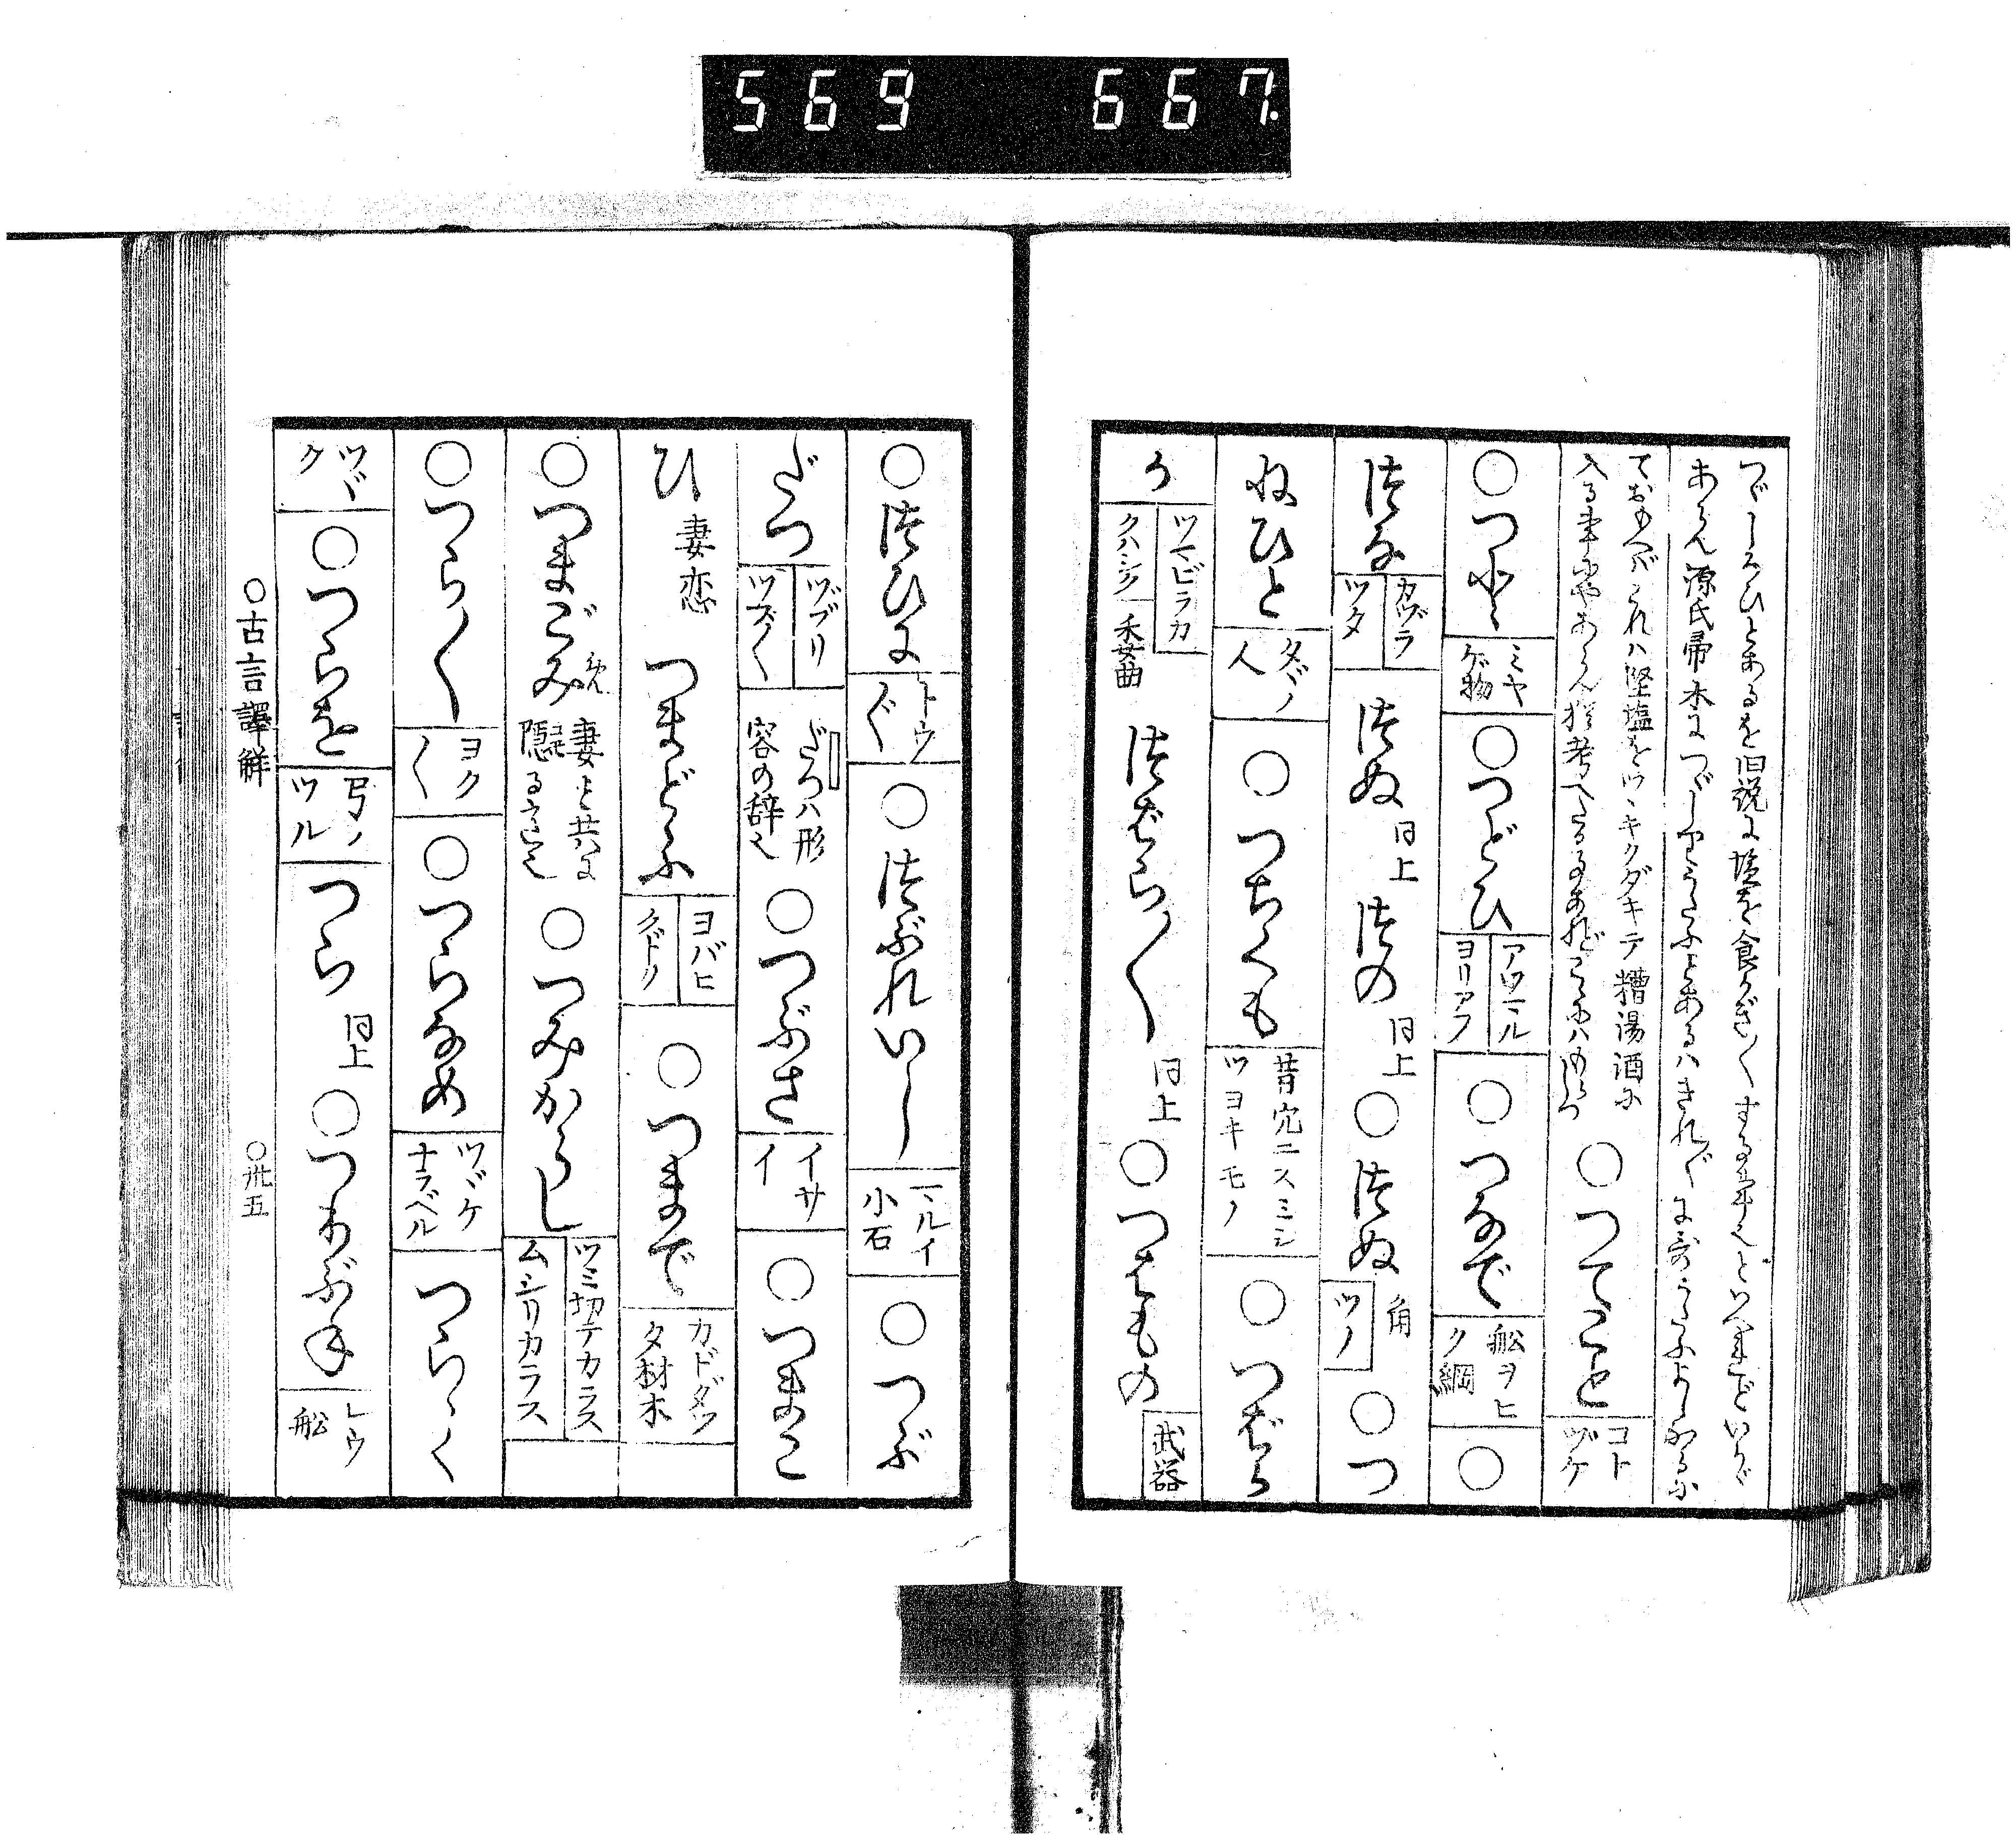 569 667.
つゞしろひとあるを旧説に塩を食かぎ〱する事也といへれどいかゞ
あらん源氏帚木につゞしりうたふとあるはきれ〲に哥うたふよしなるに
ておもへばこれハ堅塩をツヽキクダキテ糟湯酒に
入る事にやあらん猶考へたる事あれどこゝにハもらしつ
○つてこと コトヅケ
○つとゝ ミヤゲ物 ○つどひ アツマル ヨリアフ ○つなで 船ヲヒク綱 ○
つな カヅラ ツタ つぬ 同上 つの 同上 ○つぬ 角 ツノ ○つ
ねひと タヾノ人 ○つちくも 昔穴ニスミシツヨキモノ ○つばら
か ツマビラカ クハシク 委曲 つばら〱 同上 ○つはもの 武器
○つひに トウ〲 ○つぶれいし マルイ小石 ○つぶ
だつ ヅブリ ツヅ〱 だつハ形容の辞也 ○つぶさ イサイ ○つまこ
ひ 妻恋 つまどふ ヨバヒ クドク ○つまで カドダツタ材木
○つまごみ 妻と共に隠る也 ○つみからし ツミ切テカラス ムシリカラス
○つら〱 ヨク〱 ○つらなめ ツヾケナラベル つらゝく
ツヾク ○つらを 弓ノツル つら 同上 ○つりぶね レウ船
○古言譯解 ○卅五